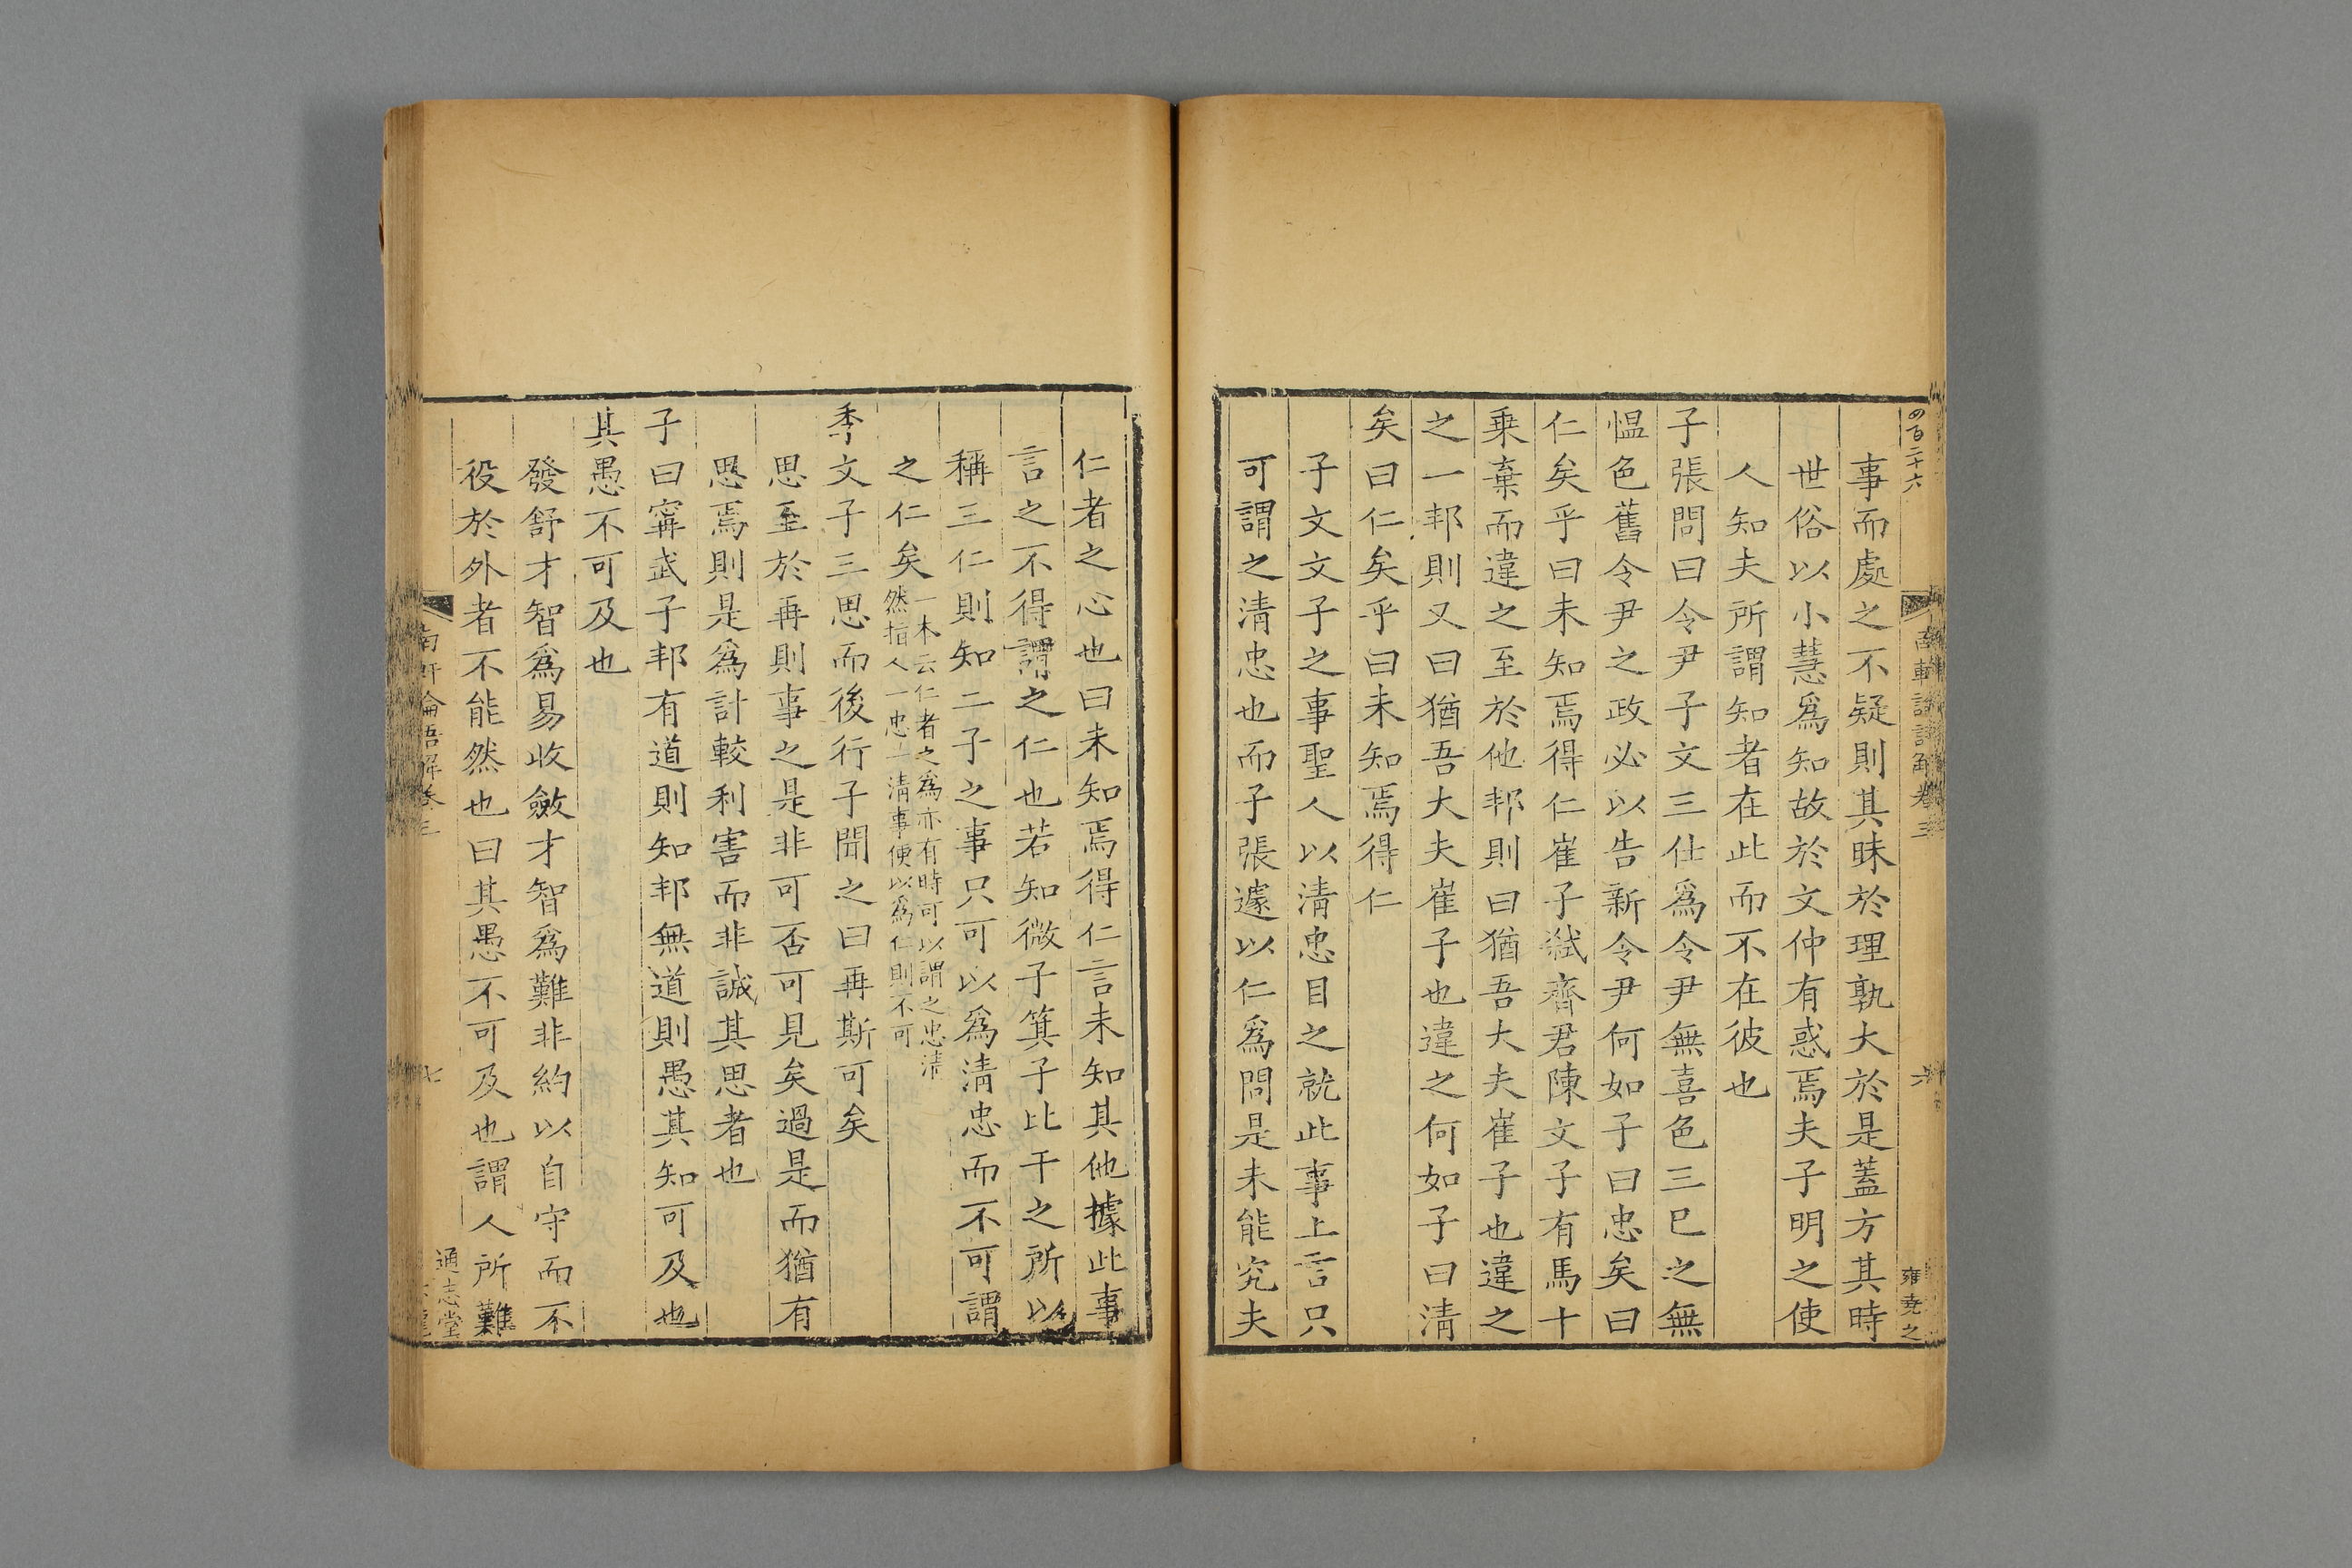 事而處之不疑則其昧於理孰大於是蓋方其時
世俗以小慧爲知故於文仲有惑焉夫子明之使
人知夫所謂知者在此而不在彼也
子張問曰令尹子文三仕爲令尹無喜色三巳之無
愠色舊令尹之政必以告新令尹何如子曰忠矣曰
仁矣乎曰未知焉得仁崔子弑齊君陳文子有馬十
乗棄而違之至於他邦則曰猶吾大夫崔子也違之
之一邦則又曰猶吾大夫崔子也違之何如子曰清
矣曰仁矣乎曰未知焉得仁
子文文子之事聖人以清忠目之就此事上言只
可謂之清忠也而子張遽以仁爲問是未能究夫
仁者之心也曰未知焉得仁言未知其他據此事
言之不得謂之仁也若知微子箕子比干之所以
稱三仁則知二子之事只可以爲清忠而不可謂
之仁矣
一本云仁者之爲亦有時可以謂之忠清
然指人一忠一清事便以爲仁則不可
季文子三思而後行子聞之曰再斯可矣
思至於再則事之是非可否可見矣過是而猶有
思焉則是爲計較利害而非誠其思者也
子曰甯武子邦有道則知邦無道則愚其知可及也
其愚不可及也
發舒才智爲易收斂才智爲難非約以自守而不
役於外者不能然也曰其愚不可及也謂人所難
南軒論語解卷三
七
通志堂